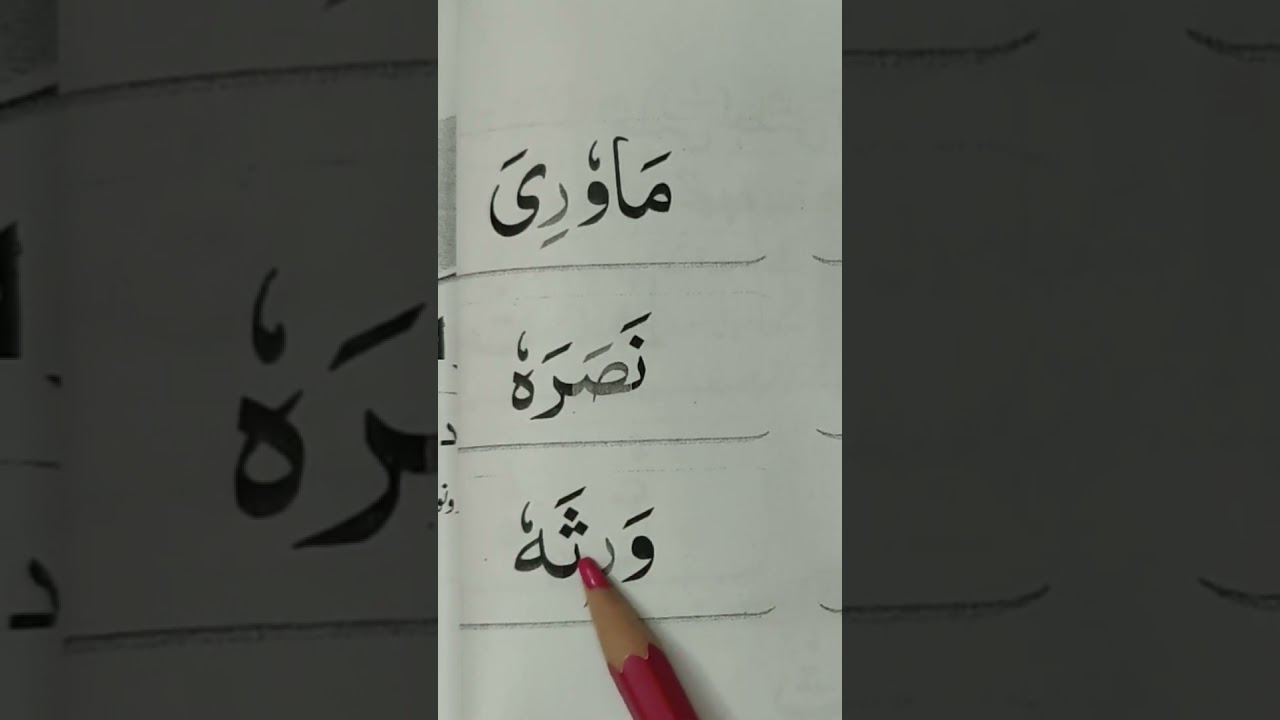 مَاوٗرِیَ
نَصَرَهٗ
وَرِثَهٗ